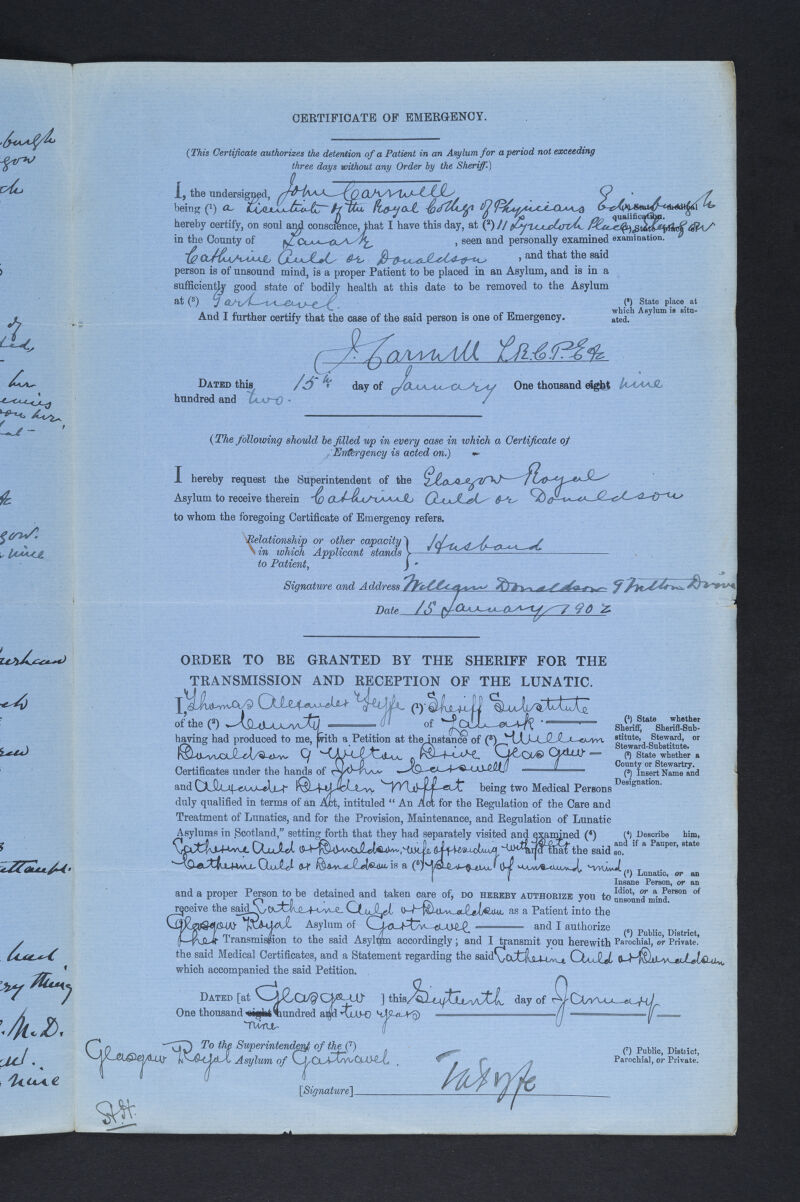 CERTIFICATE OF EMERGENCY.
(This Certificate authorizes the detention of a Patient in an Asylum for a period not exceeding
three days without any Order by the Sheriff.)
I, the undersigned, John Carswell
being (¹) a Licentiate of the Royal College of Physicians Edinburgh
hereby certify, on soul and conscience, that I have this day, at (²) 11 Lynedoch Place, Glasgow
in the County of Lanark, seen and personally examined
Catherine Auld or Donaldson, and that the said
person is of unsound mind, is a proper Patient to be placed in an Asylum, and is in a
sufficiently good state of bodily health at this date to be removed to the Asylum
at (³) Gartnavel.
And I further certify that the case of the said person is one of Emergency.
qualification.
(²) State place of
examination.
(³) State place at
which Asylum is situ-
ated.
J. Carswell L.R.C.P.E &c
DATED this 15th day of January One thousand eight nine
hundred and two.
(The following should be filled up in every case in which a Certificate of
Emergency is acted on.)
I hereby request the Superintendent of the Glasgow Royal
Asylum to receive therein Catherine Auld or Donaldson
to whom the foregoing Certificate of Emergency refers.
Relationship or other capacity
in which Applicant stands
to Patient,
Husband
Signature and Address William Donaldson 9 Wilton Drive
Date 15 January 1902
ORDER TO BE GRANTED BY THE SHERIFF FOR THE
TRANSMISSION AND RECEPTION OF THE LUNATIC.
I, Thomas Alexander Fyffe (¹) Sheriff Substitute
of the (²) County of Lanark
having had produced to me, with a Petition at the instance of (³) William
Donaldson 9 Wilton Drive Glasgow
Certificates under the hands of John Carswell
and Alexander Dryden Moffat being two Medical Persons
duly qualified in terms of an Act, intituled "An Act for the Regulation of the Care and
Treatment of Lunatics, and for the Provision, Maintenance, and Regulation of Lunatic
Asylums in Scotland," setting forth that they had separately visited and examined (⁴)
Catherine Auld or Donaldson, wife of & residing with Petr and that the said
Catherine Auld or Donaldson is a (⁵) person of unsound mind
and a proper Person to be detained and taken care of, DO HEREBY AUTHORIZE you to
receive the said Catherine Auld or Donaldson as a Patient into the
Glasgow Royal Asylum of Gartnavel and I authorize
her Transmission to the said Asylum accordingly; and I transmit you herewith
the said Medical Certificates, and a Statement regarding the said Catherine Auld or Donaldson
which accompanied the said Petition.
(¹) State whether
Sheriff, Sheriff-Sub-
stitute, Steward, or
Steward-Substitute.
(²) State whether a
County or Stewartry.
(³) Insert Name and
Designation.
(⁴) Describe him,
and if a Pauper, state
so.
(⁵) Lunatic, or an
Insane Person, or an
Idiot, or a Person of
unsound mind.
(⁶) Public, District,
Parochial, or Private.
DATED [at Glasgow ] this Sixteenth day of January
One thousand eight hundred and two years
nine
To the Superintendent of the (⁷)
Glasgow Royal Asylum of Gartnavel.
(⁷) Public, District,
Parochial, or Private.
[Signature] T A Fyfe
burgh
gow
her
gow.
nine
had
ery thing
M.D.
nine